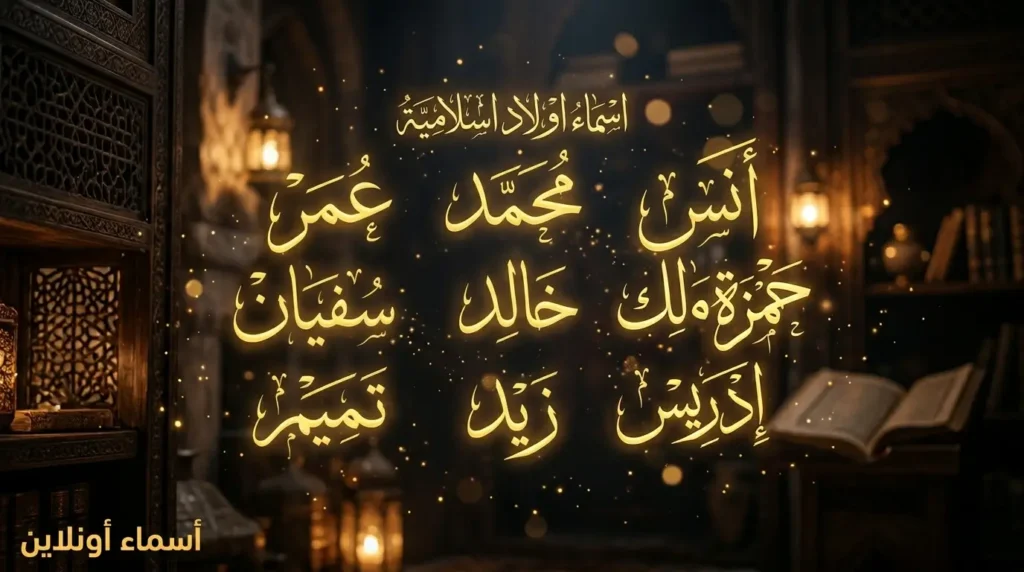 اسماء اولاد اسلامية
أنس محمد عمر
حمزة ملك خالد سفيان
إدريس زيد تميم
أسماء أونلاين